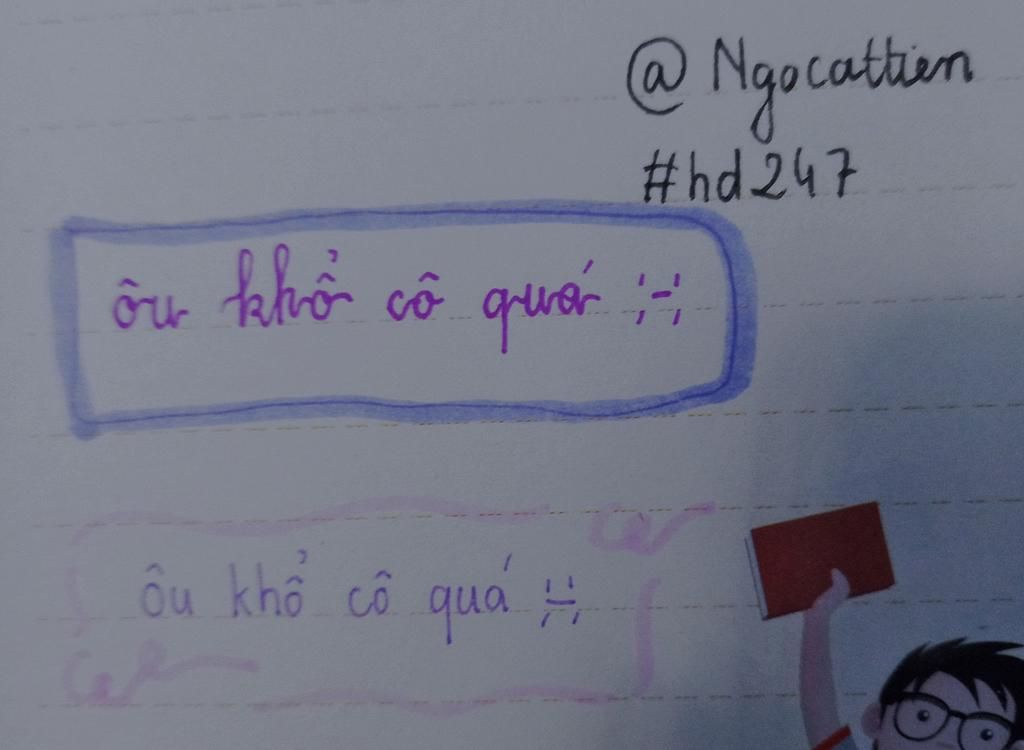 @ Ngocattien
#hd247
ôu khổ cô quá ;-;
ôu khổ cô quá ;-;